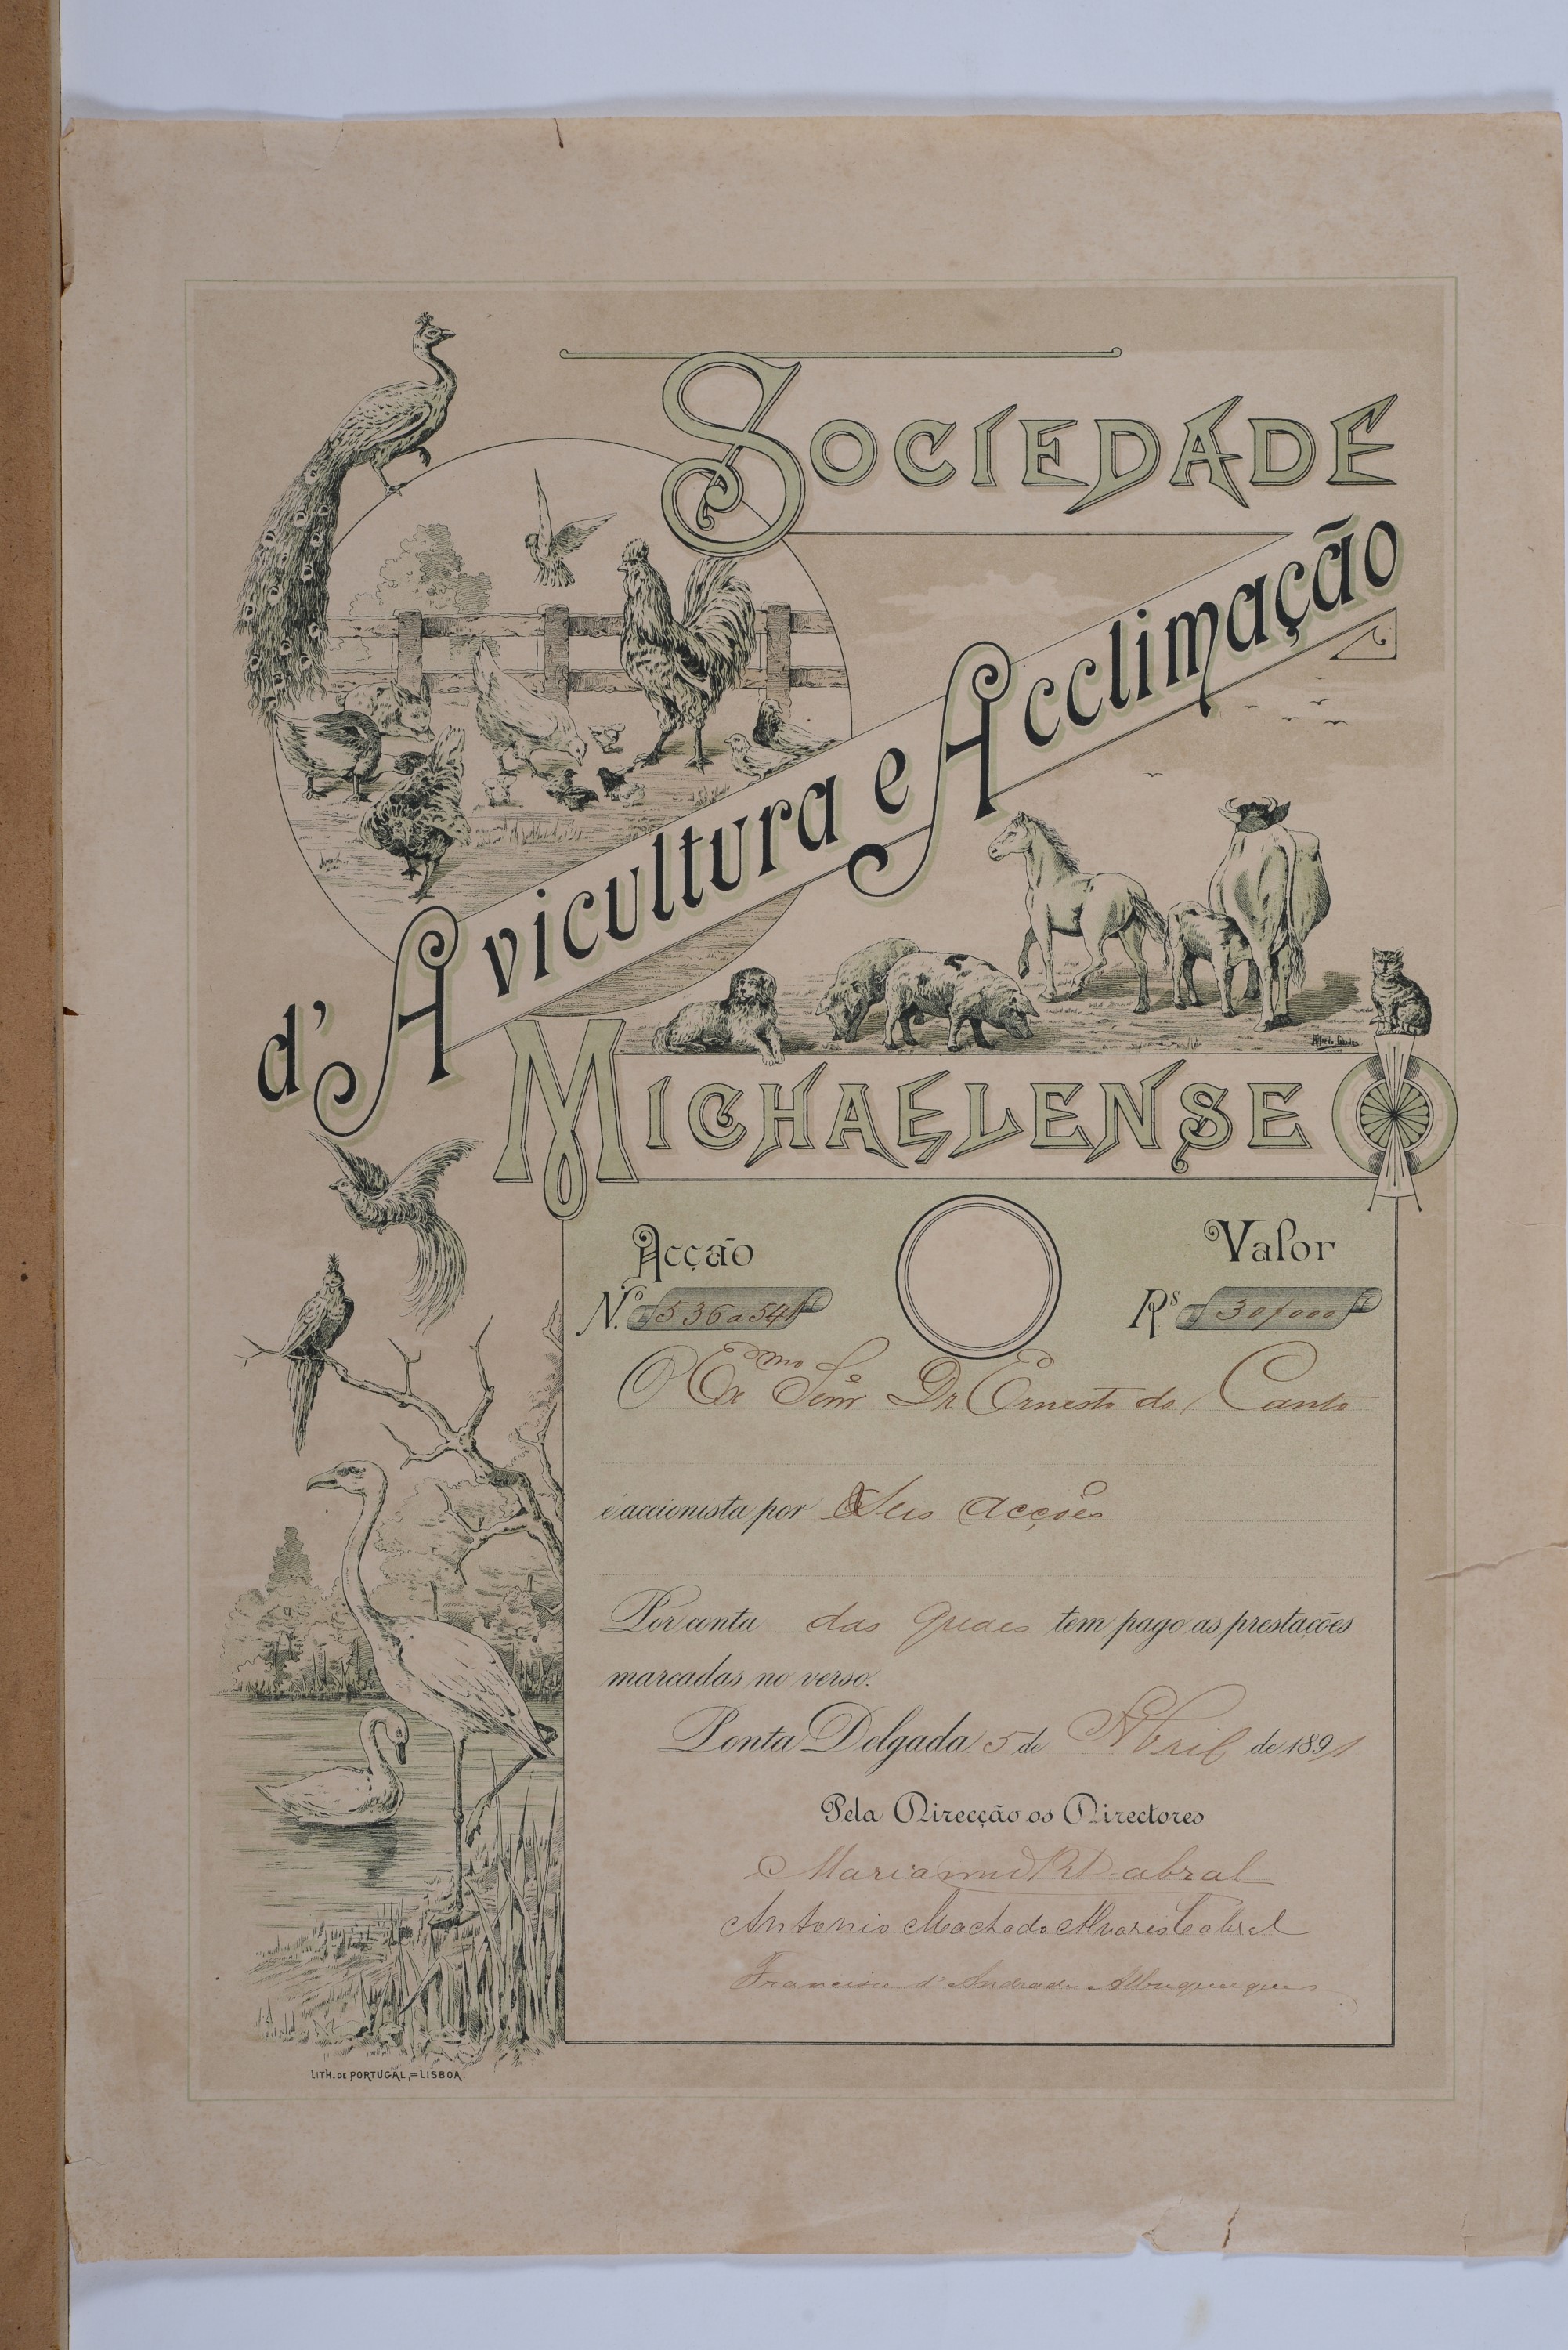 SOCIEDADE
d'Avicultura e Acclimação
MICHAELENSE
Acção
Valor
N.º 536 a 541
Rs 30$000
O Exmo Senr Dr Ernesto do Canto
é accionista por Seis Acções
Por conta das quaes tem pago as prestações
marcadas no verso.
Ponta Delgada 5 de Abril de 1891
Pela Direcção os Directores
Cabral
Antonio Machado Alvares Cabral
Francisco d'Andrade Albuquerque
LITH. DE PORTUGAL,=LISBOA.